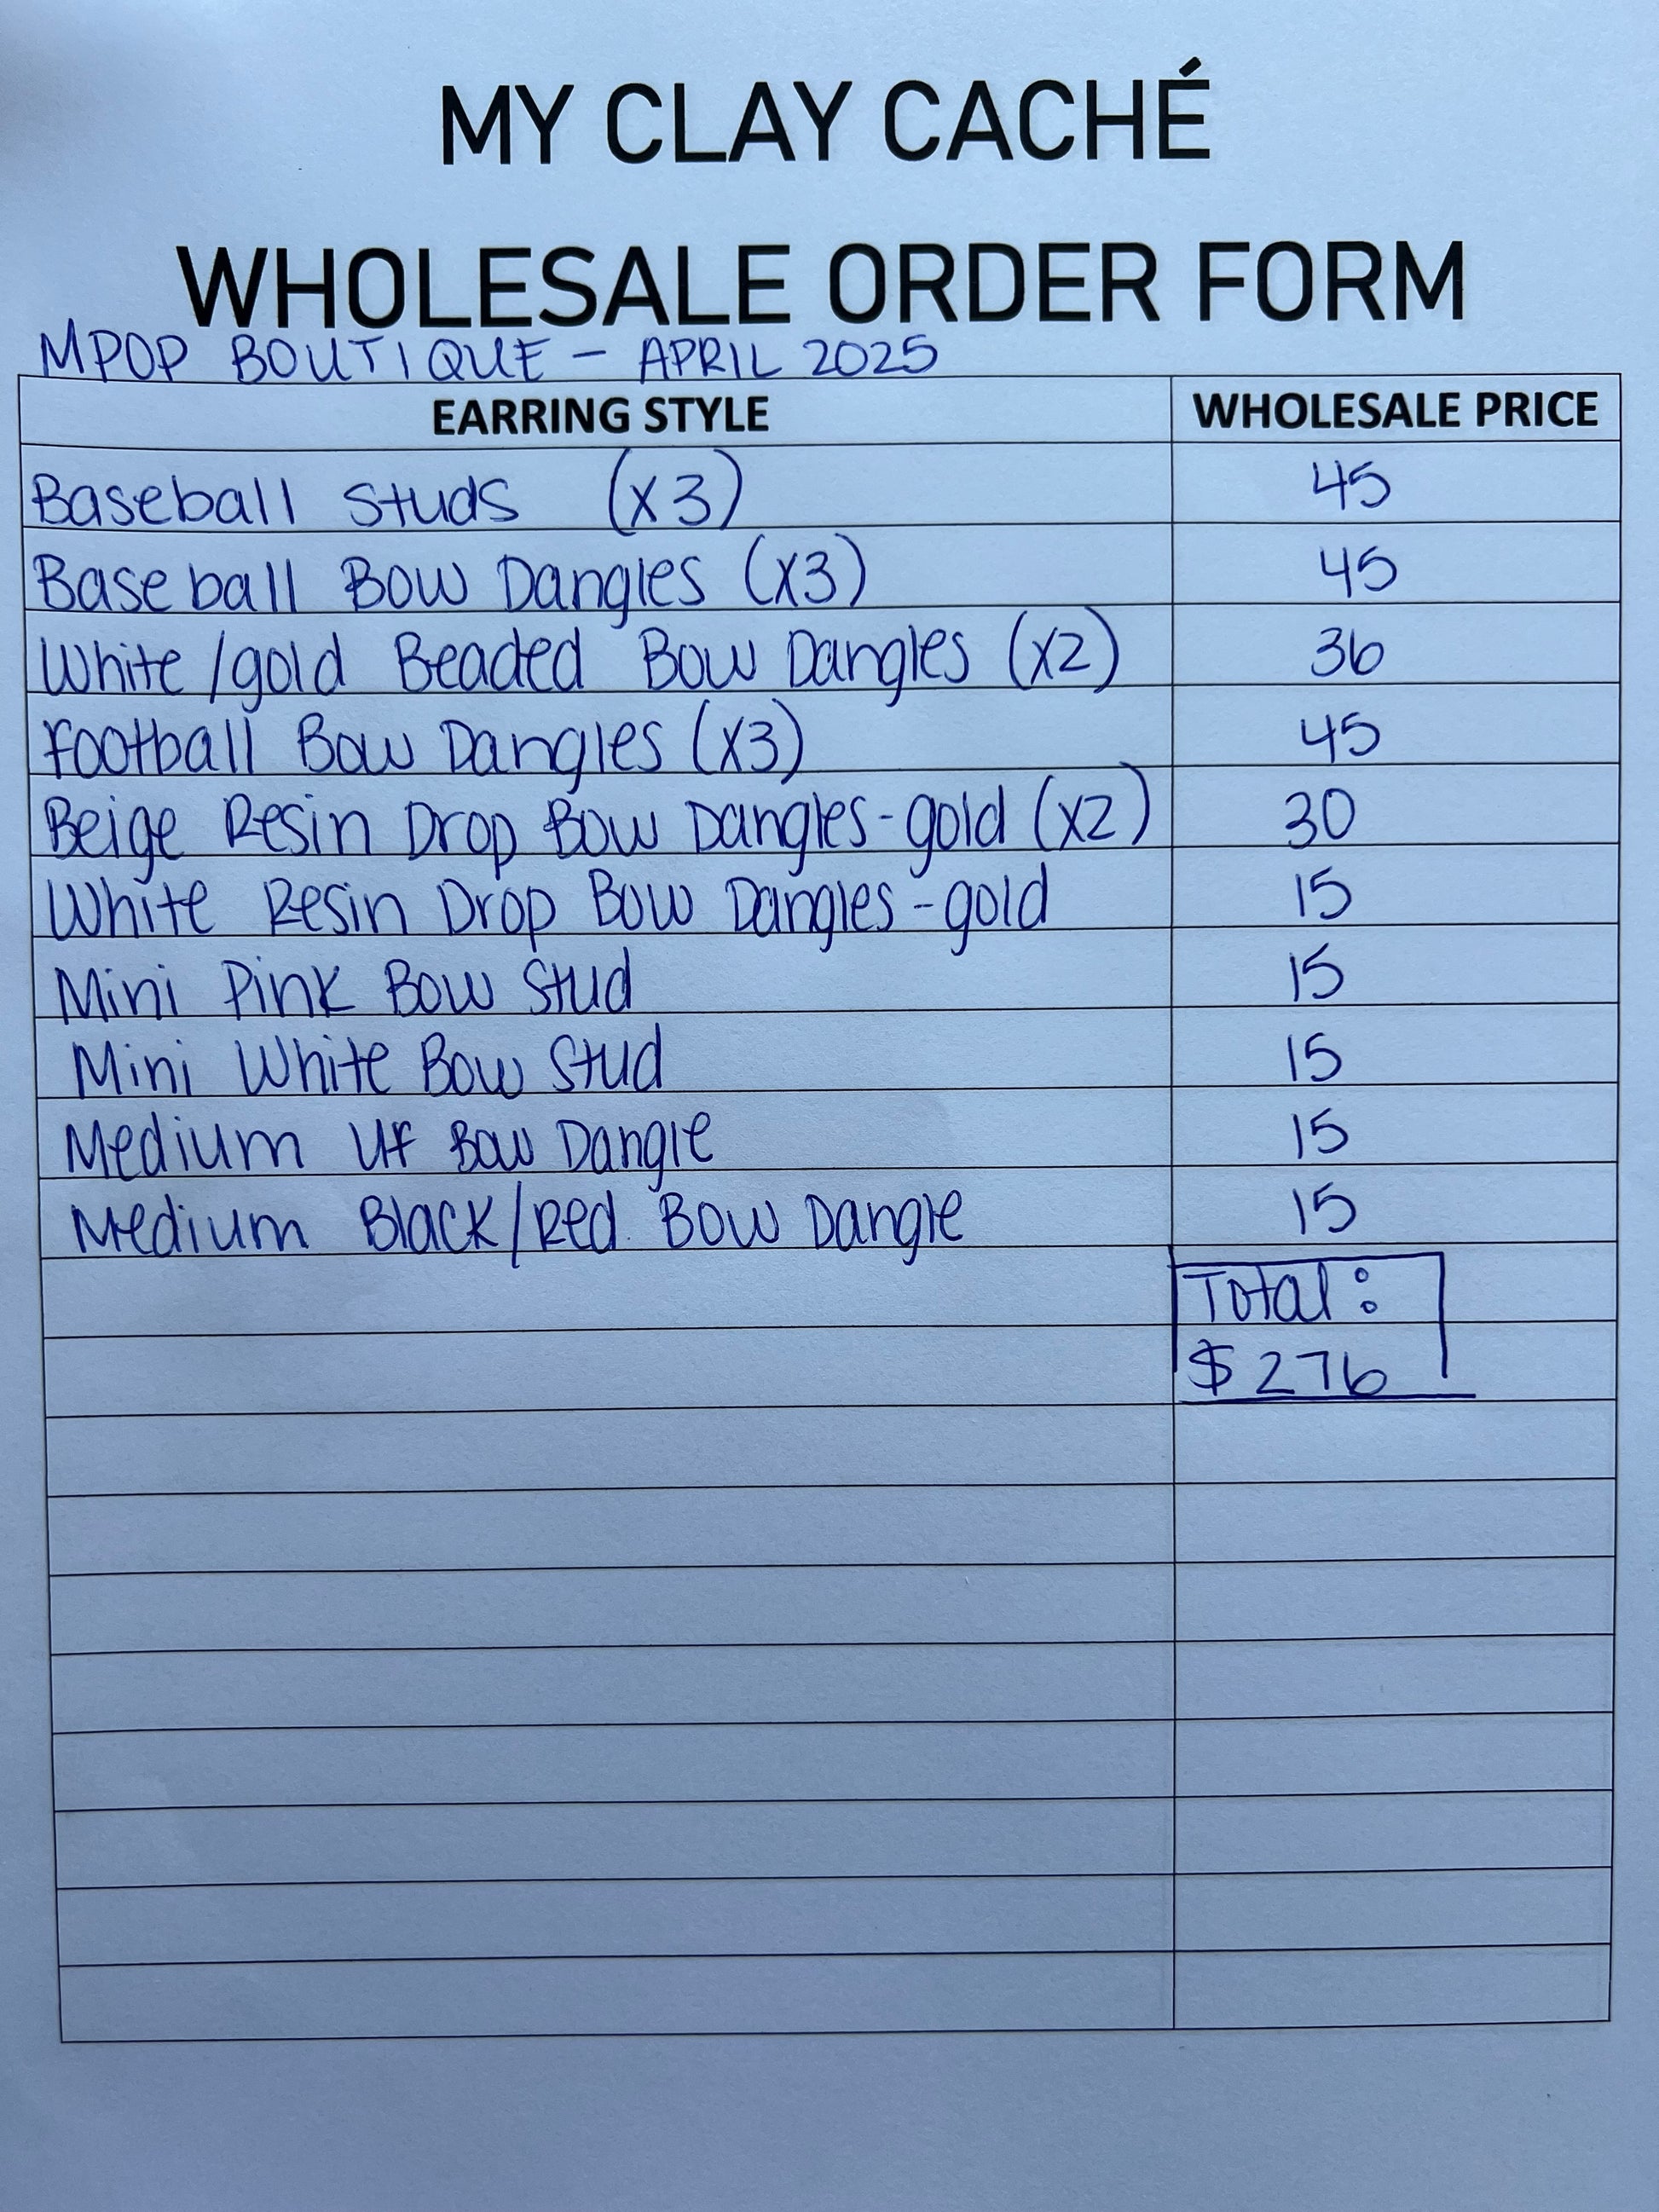 MY CLAY CACHÉ
WHOLESALE ORDER FORM
MPOP BOUTIQUE - APRIL 2025
EARRING STYLE WHOLESALE PRICE
Baseball Studs (x3) 45
Baseball Bow Dangles (x3) 45
White/gold Beaded Bow Dangles (x2) 36
Football Bow Dangles (x3) 45
Beige Resin Drop Bow Dangles-gold (x2) 30
White Resin Drop Bow Dangles-gold 15
Mini Pink Bow Stud 15
Mini White Bow Stud 15
Medium UF Bow Dangle 15
Medium Black/Red Bow Dangle 15
Total:
$276